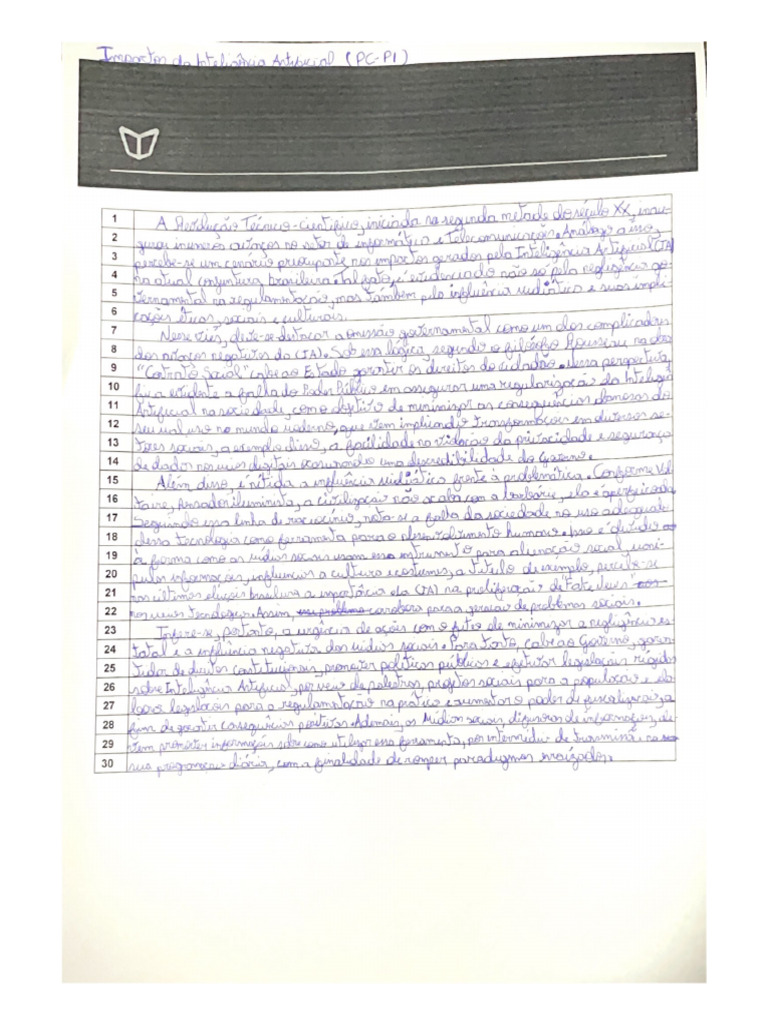 Impactos da Inteligência Artificial (PC-PI)
1 A Revolução Técnico-científico, iniciada na segunda metade do século XX, inau-
2 gurou inúmeros avanços no setor de informática e Telecomunicações. Análogo a isso,
3 percebe-se um cenário preocupante nos impactos gerados pela Inteligência Artificial (IA)
4 na atual conjuntura brasileira. Tal fato, é evidenciado não só pela negligência go-
5 vernamental na regulamentação, mas também pela influência midiática e suas impli-
6 cações éticas, sociais e culturais.
7 Nesse viés, deve-se destacar a omissão governamental como um dos complicadores
8 dos avanços negativos da (IA). Sob essa lógica, segundo o filósofo Rousseau na obra
9 "Contrato Social" cabe ao Estado garantir os direitos do cidadão. nessa perspectiva,
10 fica evidente a falha do Poder Público em assegurar uma regularização da Inteligência
11 Artificial na sociedade, com o objetivo de minimizar as consequências danosas do
12 seu mal uso no mundo moderno, que vem implicando transformações em diversos se-
13 tores sociais, a exemplo disso, a facilidade na violação da privacidade e segurança
14 de dados nos meios digitais ocasionando uma descredibilidade do Governo.
15 Além disso, é nítida a influência midiática frente à problemática. Conforme Vol
16 taire, Pensador iluminista, a civilização não acaba com a barbárie, ela é aperfeiçoada.
17 Seguindo essa linha de raciocínio, nota-se a falha da sociedade no uso adequado
18 dessa tecnologia como ferramenta para o desenvolvimento humano. Isso é devido
19 à forma como as mídias sociais usam esse instrumento para alienação social, mani-
20 pular informações, influenciar a cultura e costumes, a título de exemplo, percebe-se
21 nas últimas eleições brasileira a importância da (IA) na proliferação de "Fake News"
22 nos meios tecnológicos. Assim, corrobora para a geração de problemas sociais.
23 Infere-se, portanto, a urgência de ações com o fito de minimizar a negligência es-
24 tatal e a influência negativa das mídias sociais. Para tanto, cabe ao Governo, garan-
25 tidor de direitos constitucionais, promover políticas públicas e efetivar legislações rígidas
26 sobre Inteligência Artificial, por meio de palestras, projetos sociais para a população e ela-
27 borar legislações para a regulamentação na prática e aumentar o poder de fiscalização, a
28 fim de garantir consequências positivas. Ademais, as Mídias sociais, difusoras de informações, de-
29 vem promover informações sobre como utilizar essa ferramenta, por intermédio de transmissão na
30 sua programação diária, com a finalidade de romper paradigmas enraizados.